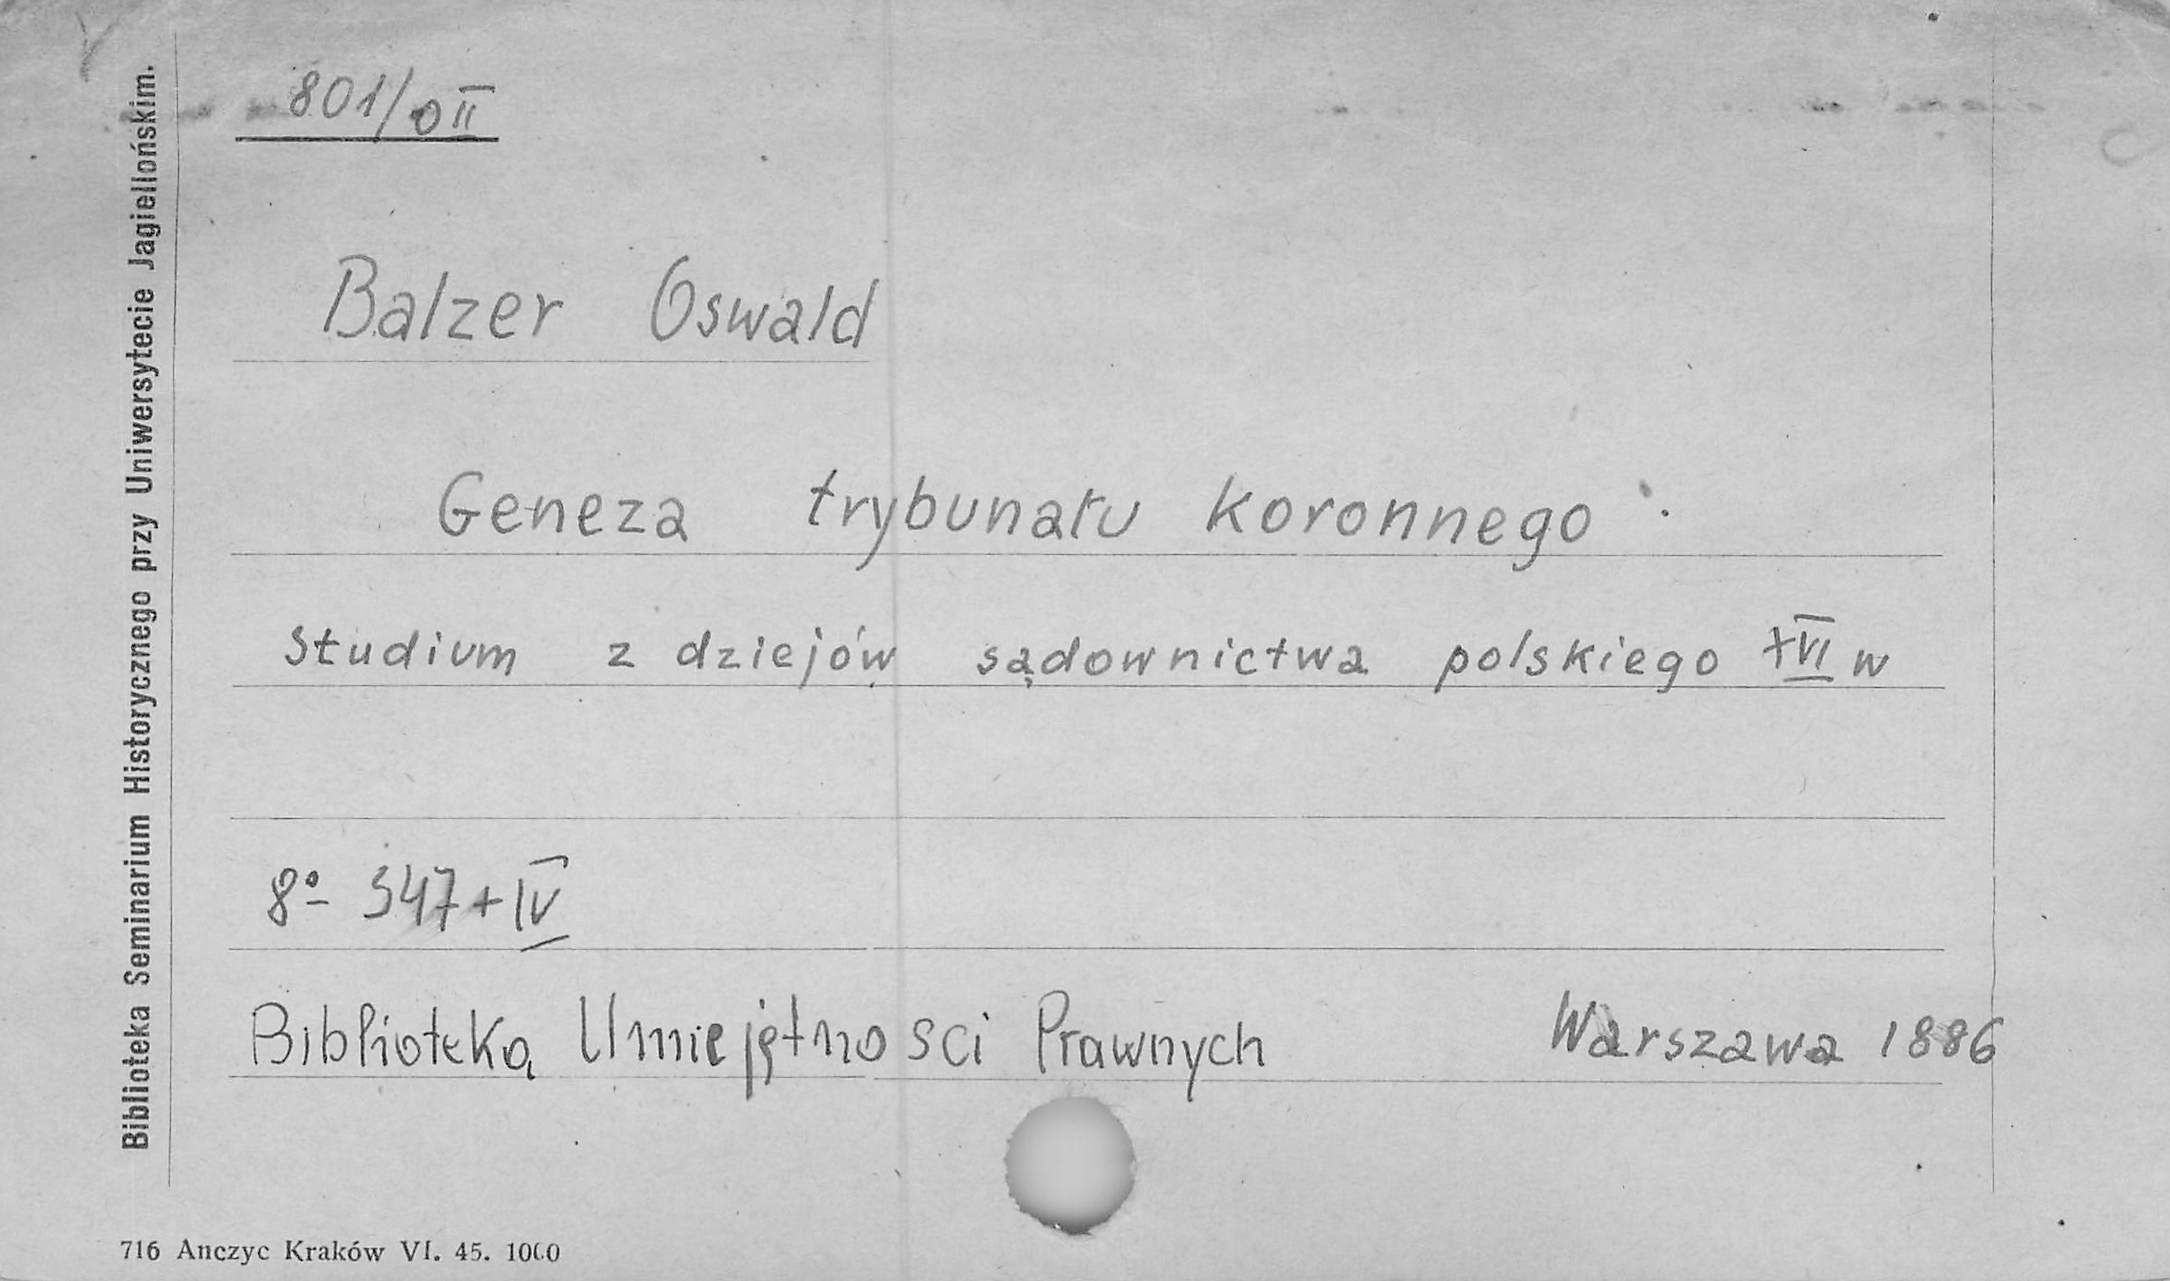 Biblioteka Seminarium Historycznego przy Uniwersytecie Jagiellońskim.
801/0 II
Balzer Oswald
Geneza trybunału koronnego.
studium z dziejów sądownictwa polskiego XVI w
8º 347+IV
Biblioteka Umiejętnosci Prawnych Warszawa 1886
716 Anczyc Kraków VI. 45. 1000